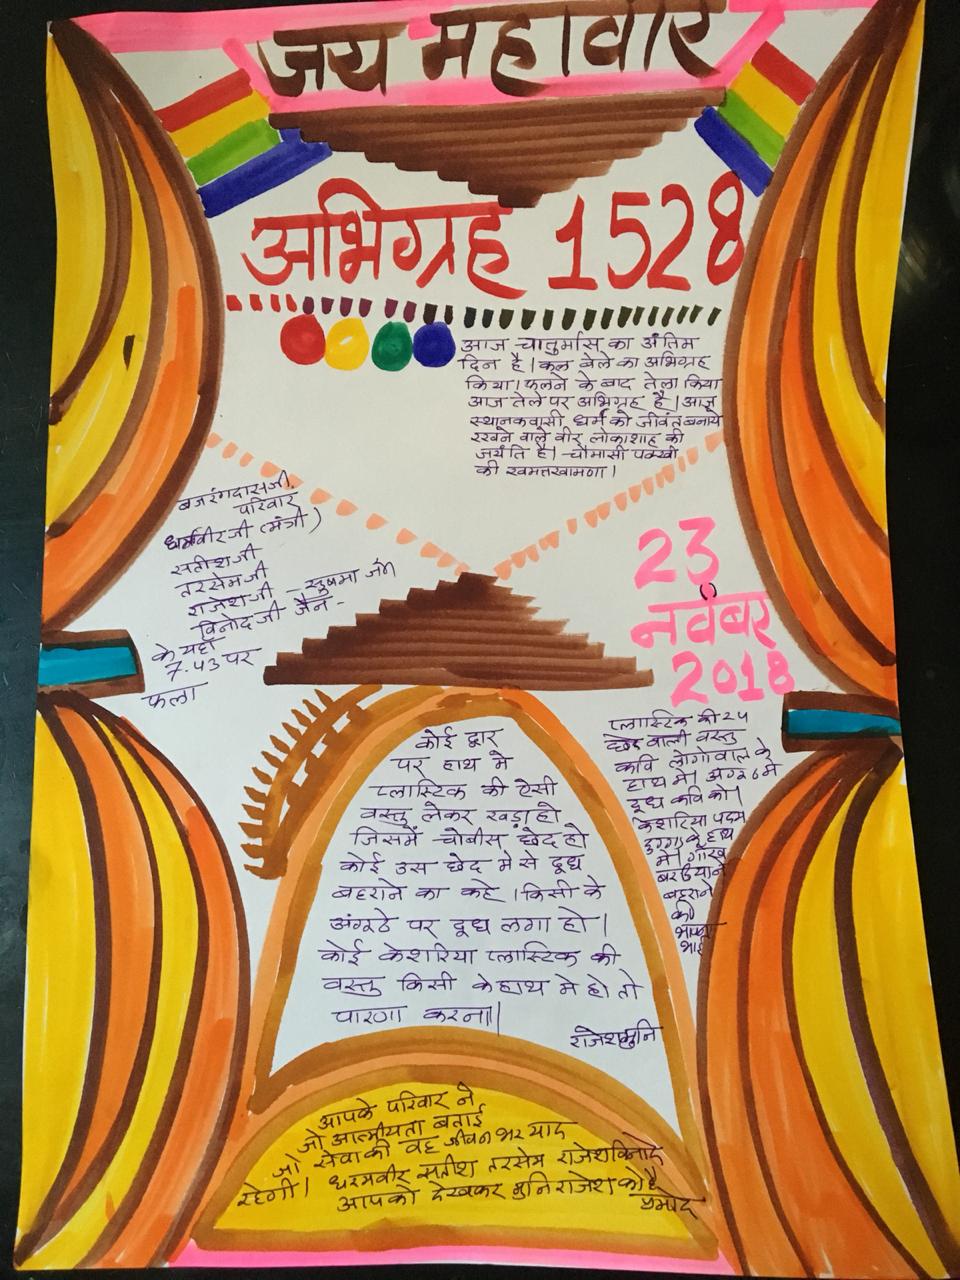 जय महावीर
अभिग्रह 1528
आज चातुर्मास का अंतिम
दिन है। कल बेले का अभिग्रह
किया। फलने के बाद तेला किया
आज तेले पर अभिग्रह है। आज
स्थानकवासी धर्म को जीवंत बनाये
रखने वाले वीर लोकाशाह की
जयंति है। चौमासी पक्खी
की खमतखामणा।
बजरंगदासजी
परिवार
धर्मवीरजी (मंत्री)
सतीशजी
तरसेमजी
राजेशजी - सुषमा जैन
विनोदजी जैन -
के यहाँ
7.43 पर
फला
23
नवंबर
2018
कोई द्वार
पर हाथ मे
प्लास्टिक की ऐसी
वस्तु लेकर खड़ा हो
जिसमें चोबीस छेद हो
कोई उस छेद मे से दूध
बहराने का कहे । किसी के
अंगूठे पर दूध लगा हो।
कोई केशरिया प्लास्टिक की
वस्तु किसी के हाथ मे हो तो
पारणा करना।
राजेशमुनि
प्लास्टिक की 24
छेद वाली वस्तु
कवि लोगोवाल के
हाथ मे। अंगूठे मे
दूध कवि को।
केशरिया पदम
के हाथ
मे।
बहराने
की
आपके परिवार ने
जो आत्मीयता बताई
जो सेवा की वह जीवन भर याद
रहेगी। धरमवीर सतीश तरसेम राजेश विनोद
आपको देखकर मुनि राजेश को है
प्रमोद